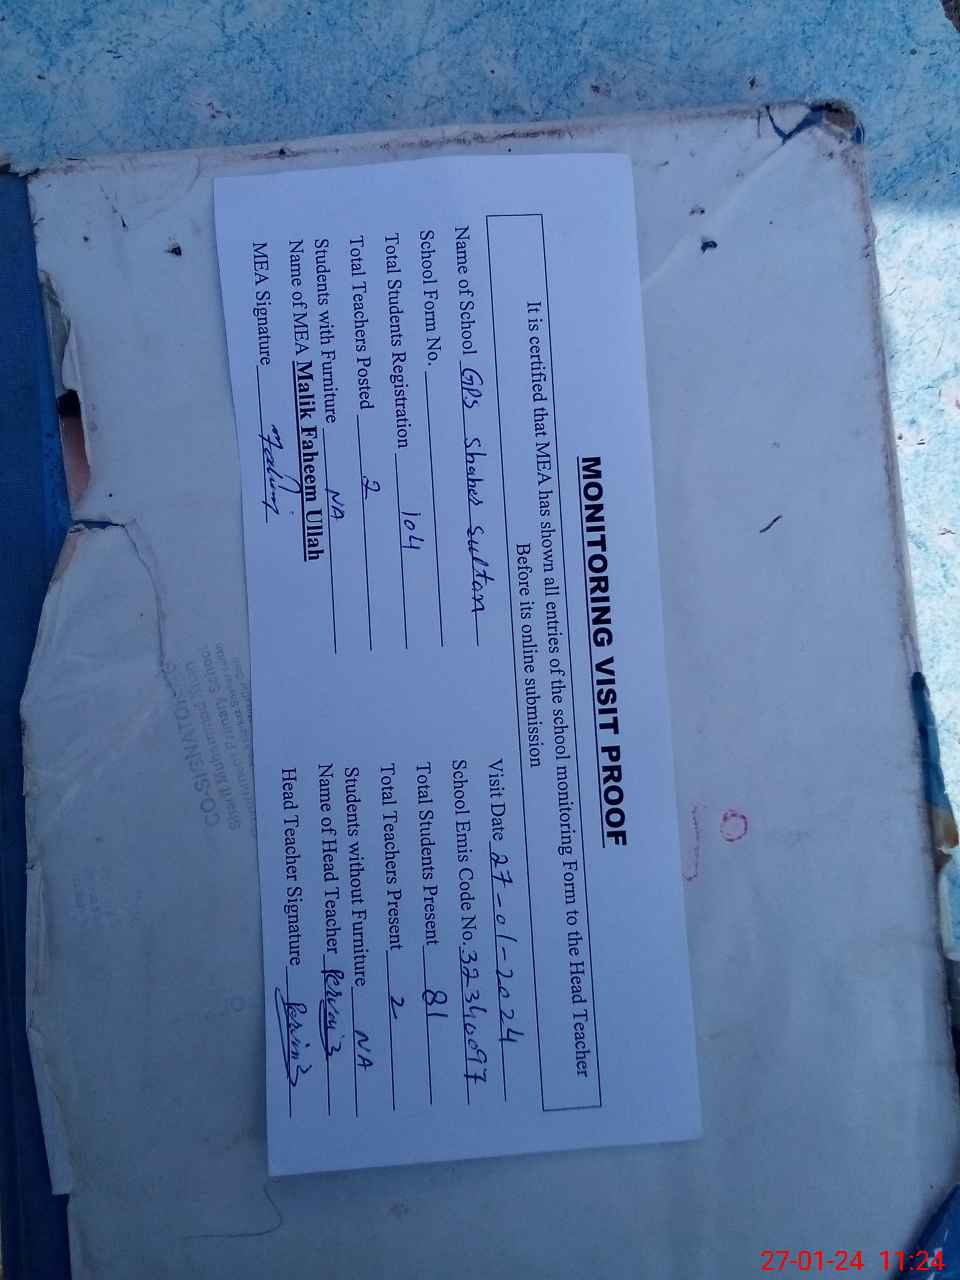 MONITORING VISIT PROOF
It is certified that MEA has shown all entries of the school monitoring Form to the Head Teacher
Before its online submission
Visit Date 27-01-2024
Name of School GPS Shaher Sultan
School Emis Code No. 32340097
School Form No.
Total Students Present 81
Total Students Registration 104
Total Teachers Present 2
Total Teachers Posted 2
Students without Furniture NA
Students with Furniture NA
Name of Head Teacher
Name of MEA Malik Faheem Ullah
Head Teacher Signature
MEA Signature
CO-SIGNATORY
27-01-24 11:24